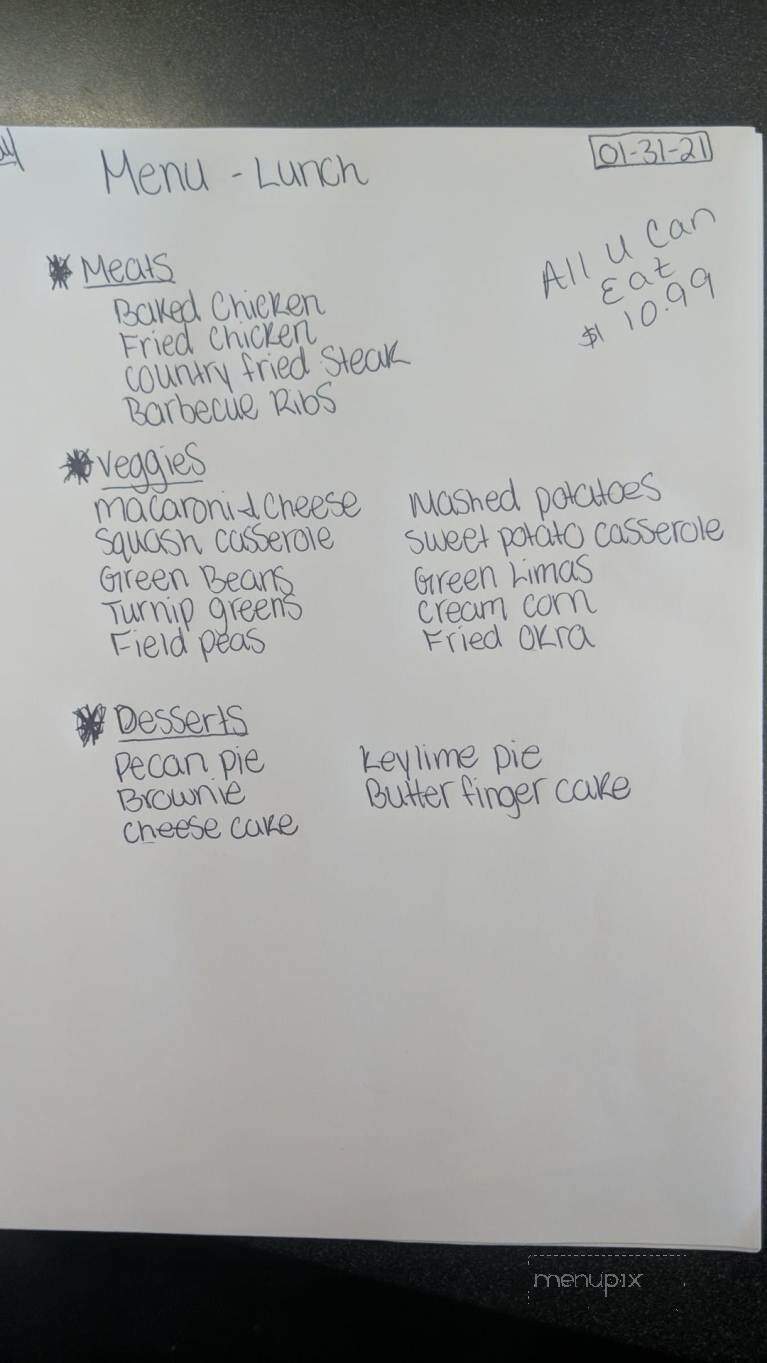 Menu - Lunch
01-31-21
All u can
Eat
$10.99
Meats
Baked Chicken
Fried Chicken
country fried Steak
Barbecue Ribs
Veggies
macaroni & cheese
Squash casserole
Green Beans
Turnip greens
Field peas
Mashed potatoes
sweet potato casserole
Green Limas
cream corn
Fried okra
Desserts
Pecan pie
Brownie
cheese cake
Keylime pie
Butter finger cake
menupix